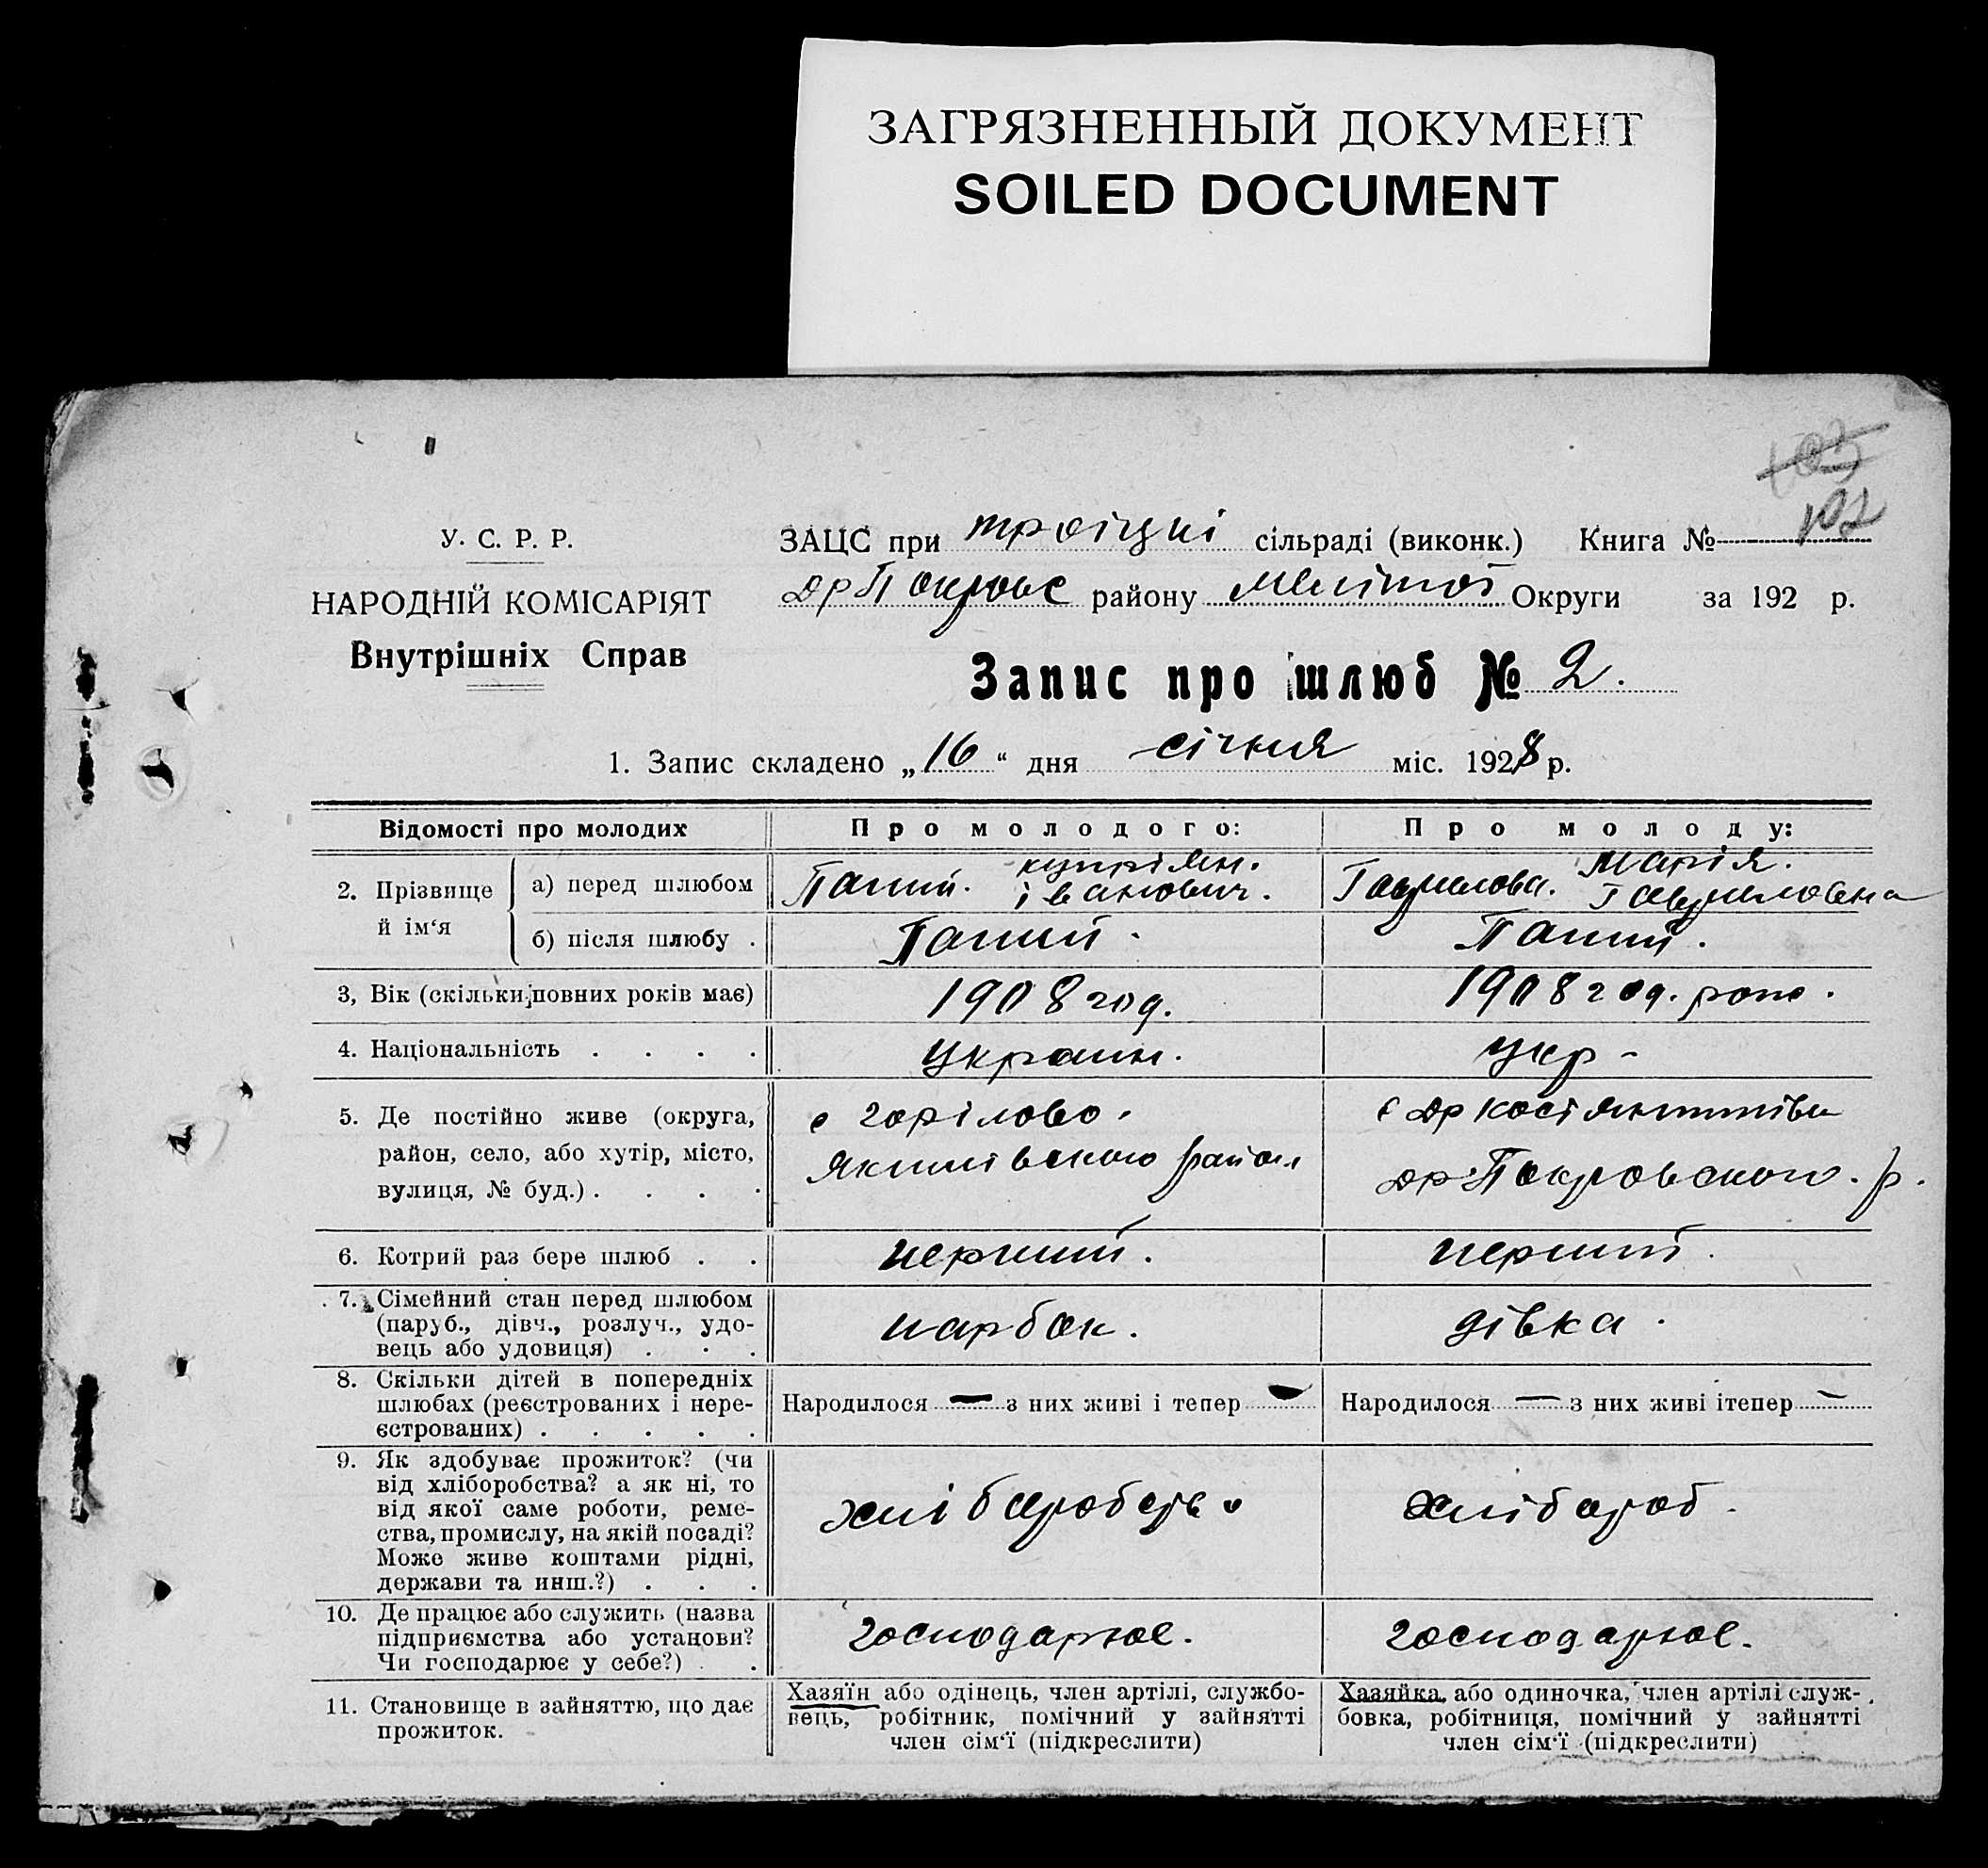 ЗАГРЯЗНЕННЫЙ ДОКУМЕНТ
SOILED DOCUMENT
103
102
У. С. Р. Р.
НАРОДНІЙ КОМІСАРІЯТ
Внутрішніх Справ
ЗАЦС при троіцкі сільраді (виконк.) Книга №
др Покровс району Меліто Округи за 192 р.
Запис про шлюб № 2.
1. Запис складено „16“ дня січня міс. 1928 р.
Відомості про молодих
Про молодого:
Про молоду:
2. Прізвище й ім‘я
а) перед шлюбом
купріян.
іванович.
Марія.
Гаврилова. Гавриловена
б) після шлюбу .
3, Вік (скільки повних років має)
1908 год.
1908 год. рожо.
4. Національність . . . .
Украин.
укр -
5. Де постійно живе (округа,
район, село, або хутір, місто,
вулиця, № буд.) . . . .
с горілово.
Якимівского район
є др костянтинівки
др Покровского. р.
6. Котрий раз бере шлюб . .
перший.
перший.
7. Сімейний стан перед шлюбом
(паруб., дівч., розлуч., удо-
вець або удовиця) . . .
парбок.
дівка.
8. Скільки дітей в попередніх
шлюбах (реєстрованих і нере-
єстрованих) . . . . .
Народилося — з них живі і тепер —
Народилося — з них живі ітепер —
9. Як здобуває прожиток? (чи
від хліборобства? а як ні, то
від якої саме роботи, реме-
ства, промислу, на якій посаді?
Може живе коштами рідні,
держави та инш.?) . . .
хліборобств
хлібороб.
10. Де працює або служить (назва
підприємства або установи?
Чи господарює у себе?) . .
господарює.
господарює.
11. Становище в зайняттю, що дає
прожиток.
Хазяїн або одінець, член артілі, службо-
вець, робітник, помічний у зайнятті
член сім‘ї (підкреслити)
Хазяйка, або одиночка, член артілі служ-
бовка, робітниця, помічний у зайнятті
член сім‘ї (підкреслити)